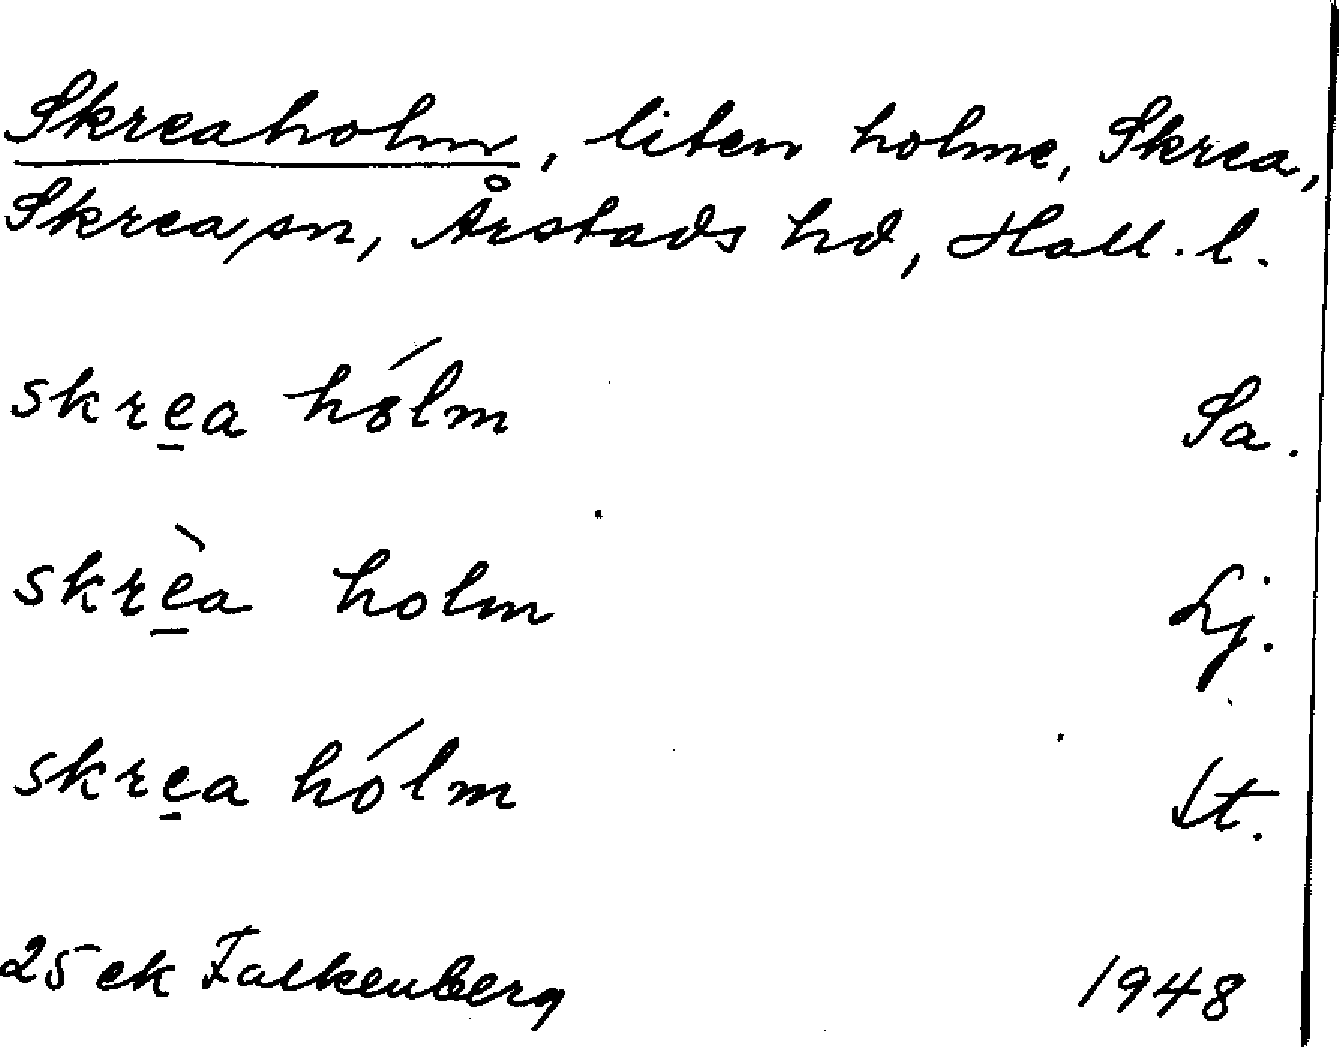 Skreaholm, liten holme, Skrea,
Skrea sn, Årstads hd, Hall. l.
skre̲a hólm Sa.
skrè̲a holm Lj.
skre̲a hólm It.
25 ek Falkenberg 1948